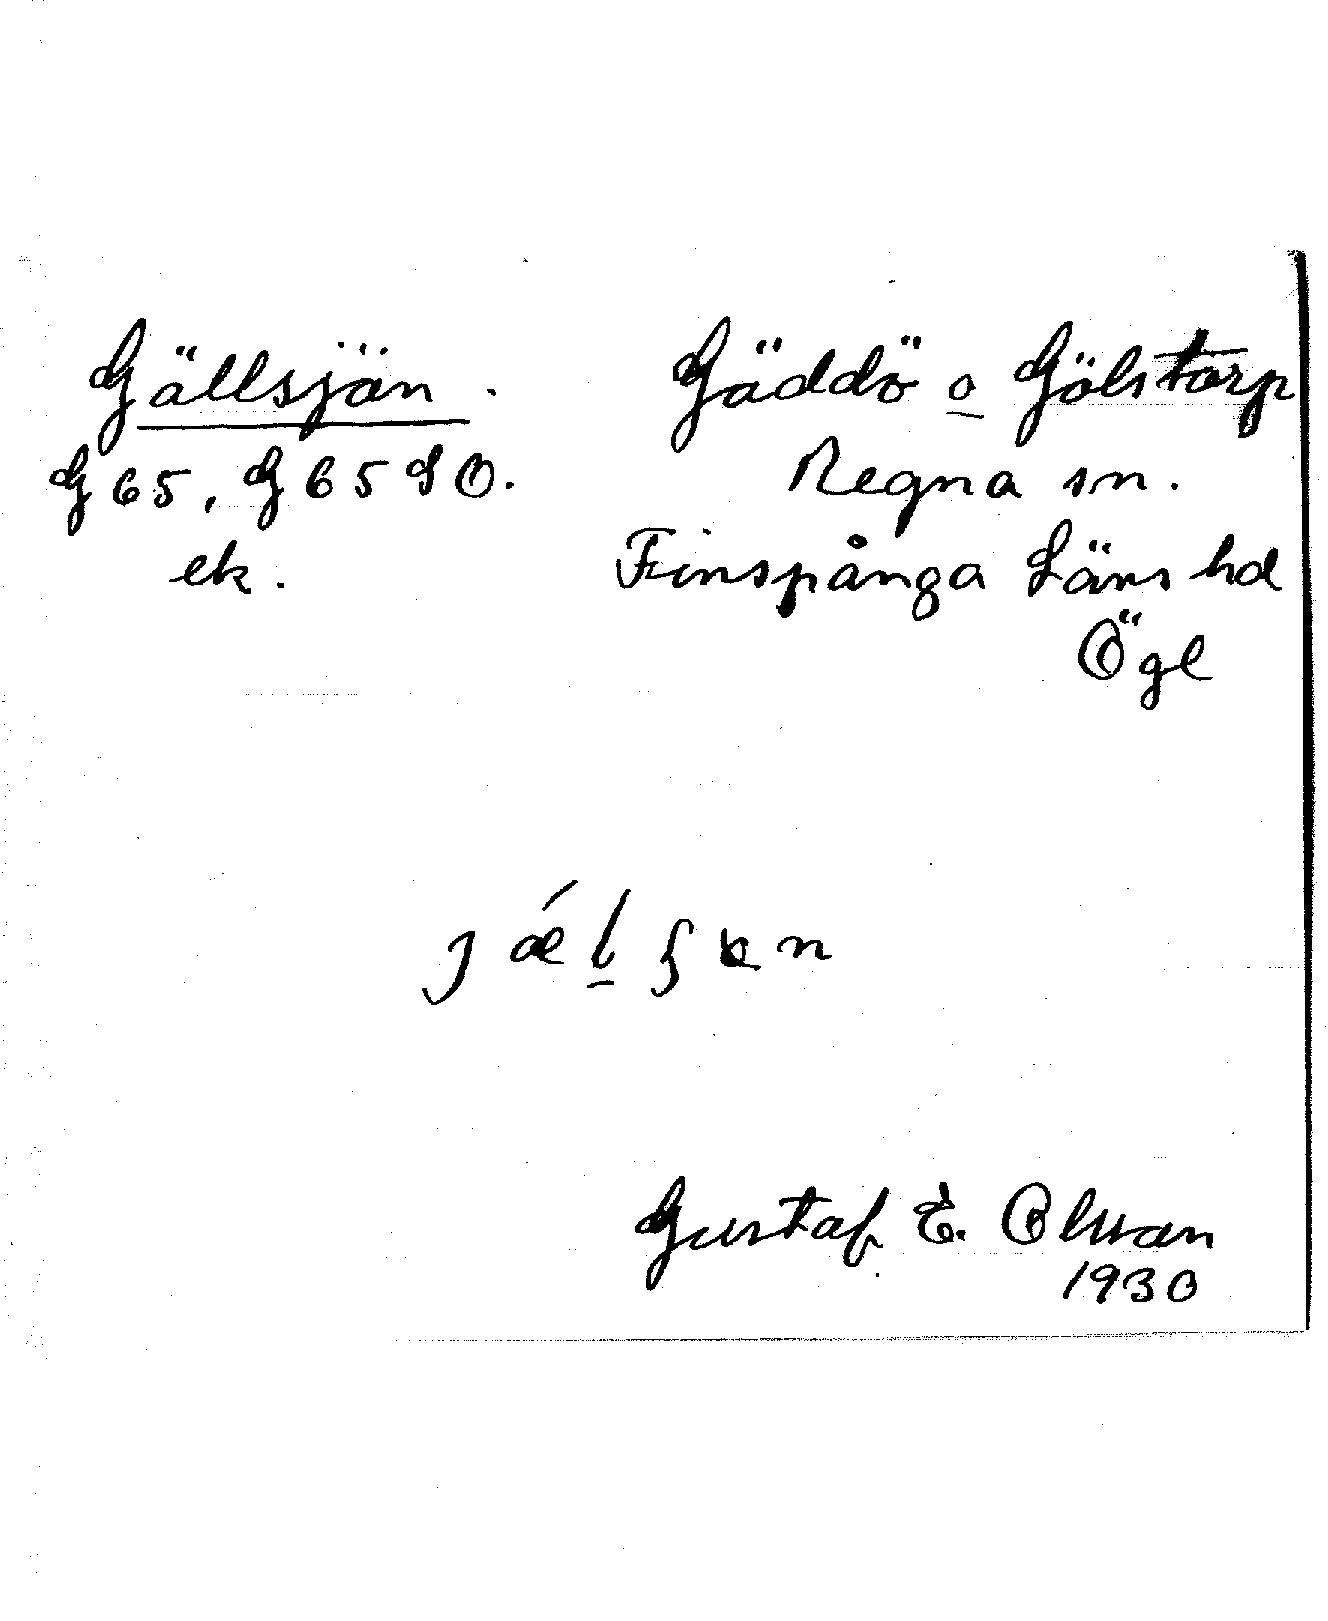 Gällsjön. Gäddö o Gölstorp
G 65, G 65 SO. Regna sn.
ek. Finspånga Läns hd
Ögl
Gustaf E. Olsson
1930